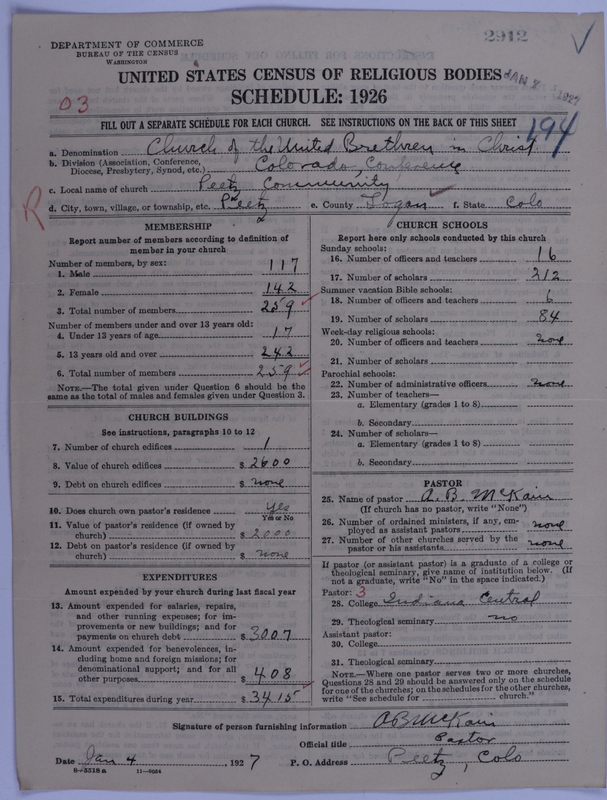 2912
DEPARTMENT OF COMMERCE
BUREAU OF THE CENSUS
WASHINGTON
UNITED STATES CENSUS OF RELIGIOUS BODIES
JAN 1927
SCHEDULE: 1926
03
FILL OUT A SEPARATE SCHEDULE FOR EACH CHURCH. SEE INSTRUCTIONS ON THE BACK OF THIS SHEET
194
a. Denomination Church of the United Brethren in Christ
b. Division (Association, Conference, Diocese, Presbytery, Synod, etc.) Colorado, Conference
c. Local name of church Peetz Community
R
d. City, town, village, or township, etc. Peetz e. County Logan f. State Colo
MEMBERSHIP
Report number of members according to definition of
member in your church
Number of members, by sex:
1. Male 117
2. Female 142
3. Total number of members 259
Number of members under and over 13 years old:
4. Under 13 years of age 17
5. 13 years old and over 242
6. Total number of members 259
NOTE.—The total given under Question 6 should be the
same as the total of males and females given under Question 3.
CHURCH BUILDINGS
See instructions, paragraphs 10 to 12
7. Number of church edifices 1
8. Value of church edifices $ 2600
9. Debt on church edifices $ none
10. Does church own pastor's residence yes
Yes or No
11. Value of pastor's residence (if owned by
church) $ 2000
12. Debt on pastor's residence (if owned by
church) $ none
EXPENDITURES
Amount expended by your church during last fiscal year
13. Amount expended for salaries, repairs,
and other running expenses; for im-
provements or new buildings; and for
payments on church debt $ 3007
14. Amount expended for benevolences, in-
cluding home and foreign missions; for
denominational support; and for all
other purposes $ 408
15. Total expenditures during year $ 3415
CHURCH SCHOOLS
Report here only schools conducted by this church
Sunday schools:
16. Number of officers and teachers 16
17. Number of scholars 212
Summer vacation Bible schools:
18. Number of officers and teachers 6
19. Number of scholars 84
Week-day religious schools:
20. Number of officers and teachers none
21. Number of scholars
Parochial schools:
22. Number of administrative officers none
23. Number of teachers—
a. Elementary (grades 1 to 8)
b. Secondary
24. Number of scholars—
a. Elementary (grades 1 to 8)
b. Secondary
PASTOR
25. Name of pastor A. B. McKain
(If church has no pastor, write "None")
26. Number of ordained ministers, if any, em-
ployed as assistant pastors none
27. Number of other churches served by the
pastor or his assistants none
If pastor (or assistant pastor) is a graduate of a college or
theological seminary, give name of institution below. (If
not a graduate, write "No" in the space indicated.)
Pastor: 3
28. College Indiana Central
29. Theological seminary no
Assistant pastor:
30. College
31. Theological seminary
NOTE.—Where one pastor serves two or more churches,
Questions 28 and 29 should be answered only on the schedule
for one of the churches; on the schedules for the other churches,
write "See schedule for church."
Signature of person furnishing information A B McKain
Official title Pastor
Date Jan 4, 1927 P. O. Address Peetz, Colo
8-5518a 11-9084